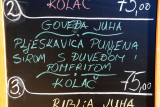 2) KOLAČ 75,00
GOVEĐA JUHA
PLJESKAVICA PUNJENA
SIROM S ĐUVEĐOM I
POMFRITOM
3) KOLAČ 75,00
RIBLJA JUHA